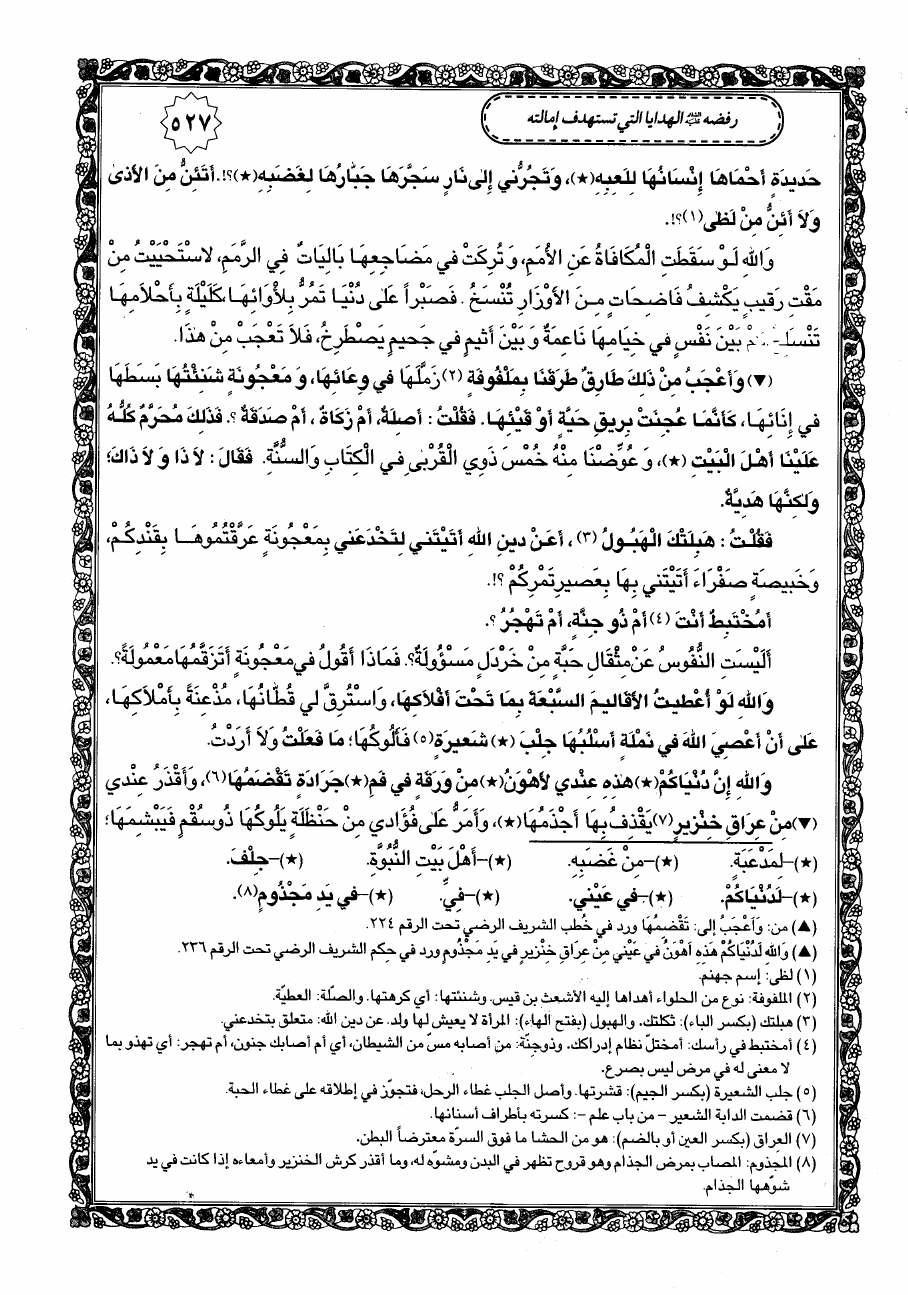 رفضه عليه السلام الهدايا التي تستهدف إمالته
٥٢٧
حَديدَةٍ أَحْمَاهَا إِنْسَانُهَا لِلَعِبِهِ(★)، وَتَجُرُّني إِلى نَارٍ سَجَّرَهَا جَبَّارُهَا لِغَضَبِهِ(★)؟!. أَتَئِنُّ مِنَ الأَذىٰ
وَلاَ أَئِنُّ مِنْ لَظى(١)؟!.
وَاللهِ لَوْ سَقَطَتِ الْمُكَافَاةُ عَنِ الأُمَمِ، وَتُرِكَتْ في مَضَاجِعِهَا بَالِيَاتٌ فِي الرِّمَمِ، لاسْتَحْيَيْتُ مِنْ
مَقْتِ رَقيبٍ يَكْشِفُ فَاضِحَاتٍ مِنَ الأَوْزَارِ تُنْسَخُ. فَصَبْراً عَلىٰ دُنْيَا تَمُرُّ بِلأْوَائِهَا، كَلَيْلَةٍ بِأَحْلاَمِهَا
تَنْسَلِخُ، كَمْ بَيْنَ نَفْسٍ في خِيَامِهَا نَاعِمَةٌ وَبَيْنَ أَثيمٍ في جَحيمٍ يَصْطَرِخُ، فَلاَ تَعْجَبْ مِنْ هٰذَا.
(▼) وَأَعْجَبُ مِنْ ذلِكَ طَارِقٌ طَرَقَنَا بِمَلْفُوفَةٍ (٢) زَمَّلَهَا في وِعَائِهَا، وَمَعْجُونَةٍ شَنِئْتُهَا بَسَطَهَا
في إِنَائِهَا، كَأَنَّمَا عُجِنَتْ بِرِيقِ حَيَّةٍ أَوْ قَيْئِهَا. فَقُلْتُ: أَصِلَةٌ، أَمْ زَكَاةٌ، أَمْ صَدَقَةٌ؟. فَذلِكَ مُحَرَّمٌ كُلُّهُ
عَلَيْنَا أَهْلَ الْبَيْتِ (★)، وَعُوِّضْنَا مِنْهُ خُمْسَ ذَوِي الْقُرْبىٰ فِي الْكِتَابِ وَالسُّنَّةِ. فَقَالَ: لاَ ذَا وَلاَ ذَاكَ؛
وَلكِنَّهَا هَدِيَّةٌ.
فَقُلْتُ: هَبِلَتْكَ الْهَبُولُ (٣)، أَعَنْ دينِ اللهِ أَتَيْتَني لِتَخْدَعَني بِمَعْجُونَةٍ عَرَّقْتُمُوهَا بِقَنْدِكُمْ،
وَخَبيصَةٍ صَفْرَاءَ أَتَيْتَني بِهَا بِعَصيرِ تَمْرِكُمْ؟!.
أَمُخْتَبِطٌ أَنْتَ (٤) أَمْ ذُو جِنَّةٍ، أَمْ تَهْجُرُ؟.
أَلَيْسَتِ النُّفُوسُ عَنْ مِثْقَالِ حَبَّةٍ مِنْ خَرْدَلٍ مَسْؤُولَةٌ؟. فَمَاذَا أَقُولُ في مَعْجُونَةٍ أَتَزَقَّمُهَا مَعْمُولَةً؟.
وَاللهِ لَوْ أُعْطيتُ الأَقَاليمَ السَّبْعَةَ بِمَا تَحْتَ أَفْلاَكِهَا، وَاسْتُرِقَّ لي قُطَّانُهَا، مُذْعِنَةً بِأَمْلاَكِهَا،
عَلىٰ أَنْ أَعْصِيَ اللهَ في نَمْلَةٍ أَسْلُبُهَا جِلْبَ (★) شَعيرَةٍ (٥) فَأَلُوكُهَا؛ مَا فَعَلْتُ وَلاَ أَرَدْتُ.
وَاللهِ إِنَّ دُنْيَاكُمْ(★) هذِهِ عِنْدي لأَهْوَنُ(★) مِنْ وَرَقَةٍ في فَمِ(★) جَرَادَةٍ تَقْضَمُهَا(٦)، وَأَقْذَرُ عِنْدي
(▼) مِنْ عِرَاقِ خِنْزيرٍ(٧) يَقْذِفُ بِهَا أَجْذَمُهَا(★)، وَأَمَرُّ عَلىٰ فُؤَادي مِنْ حَنْظَلَةٍ يَلُوكُهَا ذُو سُقْمٍ فَيَبْشِمُهَا؛
(★)-لِمَدْعَبَةٍ. (★)-مِنْ غَضَبِهِ. (★)-أَهْلَ بَيْتِ النُّبُوَّةِ. (★)-جِلْفَ.
(★)-لَدُنْيَاكُمْ. (★)-في عَيْني. (★)-فِيِّ. (★)-في يَدِ مَجْذُومٍ(٨).
(▲) من: وَأَعْجَبُ إلى: تَقْضَمُهَا ورد في خُطب الشريف الرضي تحت الرقم ٢٢٤.
(▲) وَاللهِ لَدُنْيَاكُمْ هَذِهِ أَهْوَنُ في عَيْني مِنْ عِرَاقِ خِنْزيرٍ في يَدِ مَجْذُومٍ ورد في حِكم الشريف الرضي تحت الرقم ٢٣٦.
(١) لظى: إسم جهنم.
(٢) الملفوفة: نوع من الحلواء أهداها إليه الأشعث بن قيس. وشنئتها: أي كرهتها. والصلة: العطيّة.
(٣) هبلتك (بكسر الباء): ثكلتك. والهبول (بفتح الهاء): المرأة لا يعيش لها ولد. عن دين الله: متعلق بتخدعني.
(٤) أمختبط في رأسك: أمختلّ نظام إدراكك. وذوجنّة: من أصابه مسّ من الشيطان، أي أم أصابك جنون، أم تهجر: أي تهذو بما
لا معنى له في مرض ليس بصرع.
(٥) جلب الشعيرة (بكسر الجيم): قشرتها. وأصل الجلب غطاء الرحل، فتجوّز في إطلاقه على غطاء الحبة.
(٦) قضمت الدابة الشعير - من باب علم -: كسرته بأطراف أسنانها.
(٧) العراق (بكسر العين أو بالضم): هو من الحشا ما فوق السرّة معترضاً البطن.
(٨) المجذوم: المصاب بمرض الجذام وهو قروح تظهر في البدن ومشوّه له، وما أقذر كرش الخنزير وأمعاءه إذا كانت في يد
شوّهها الجذام.